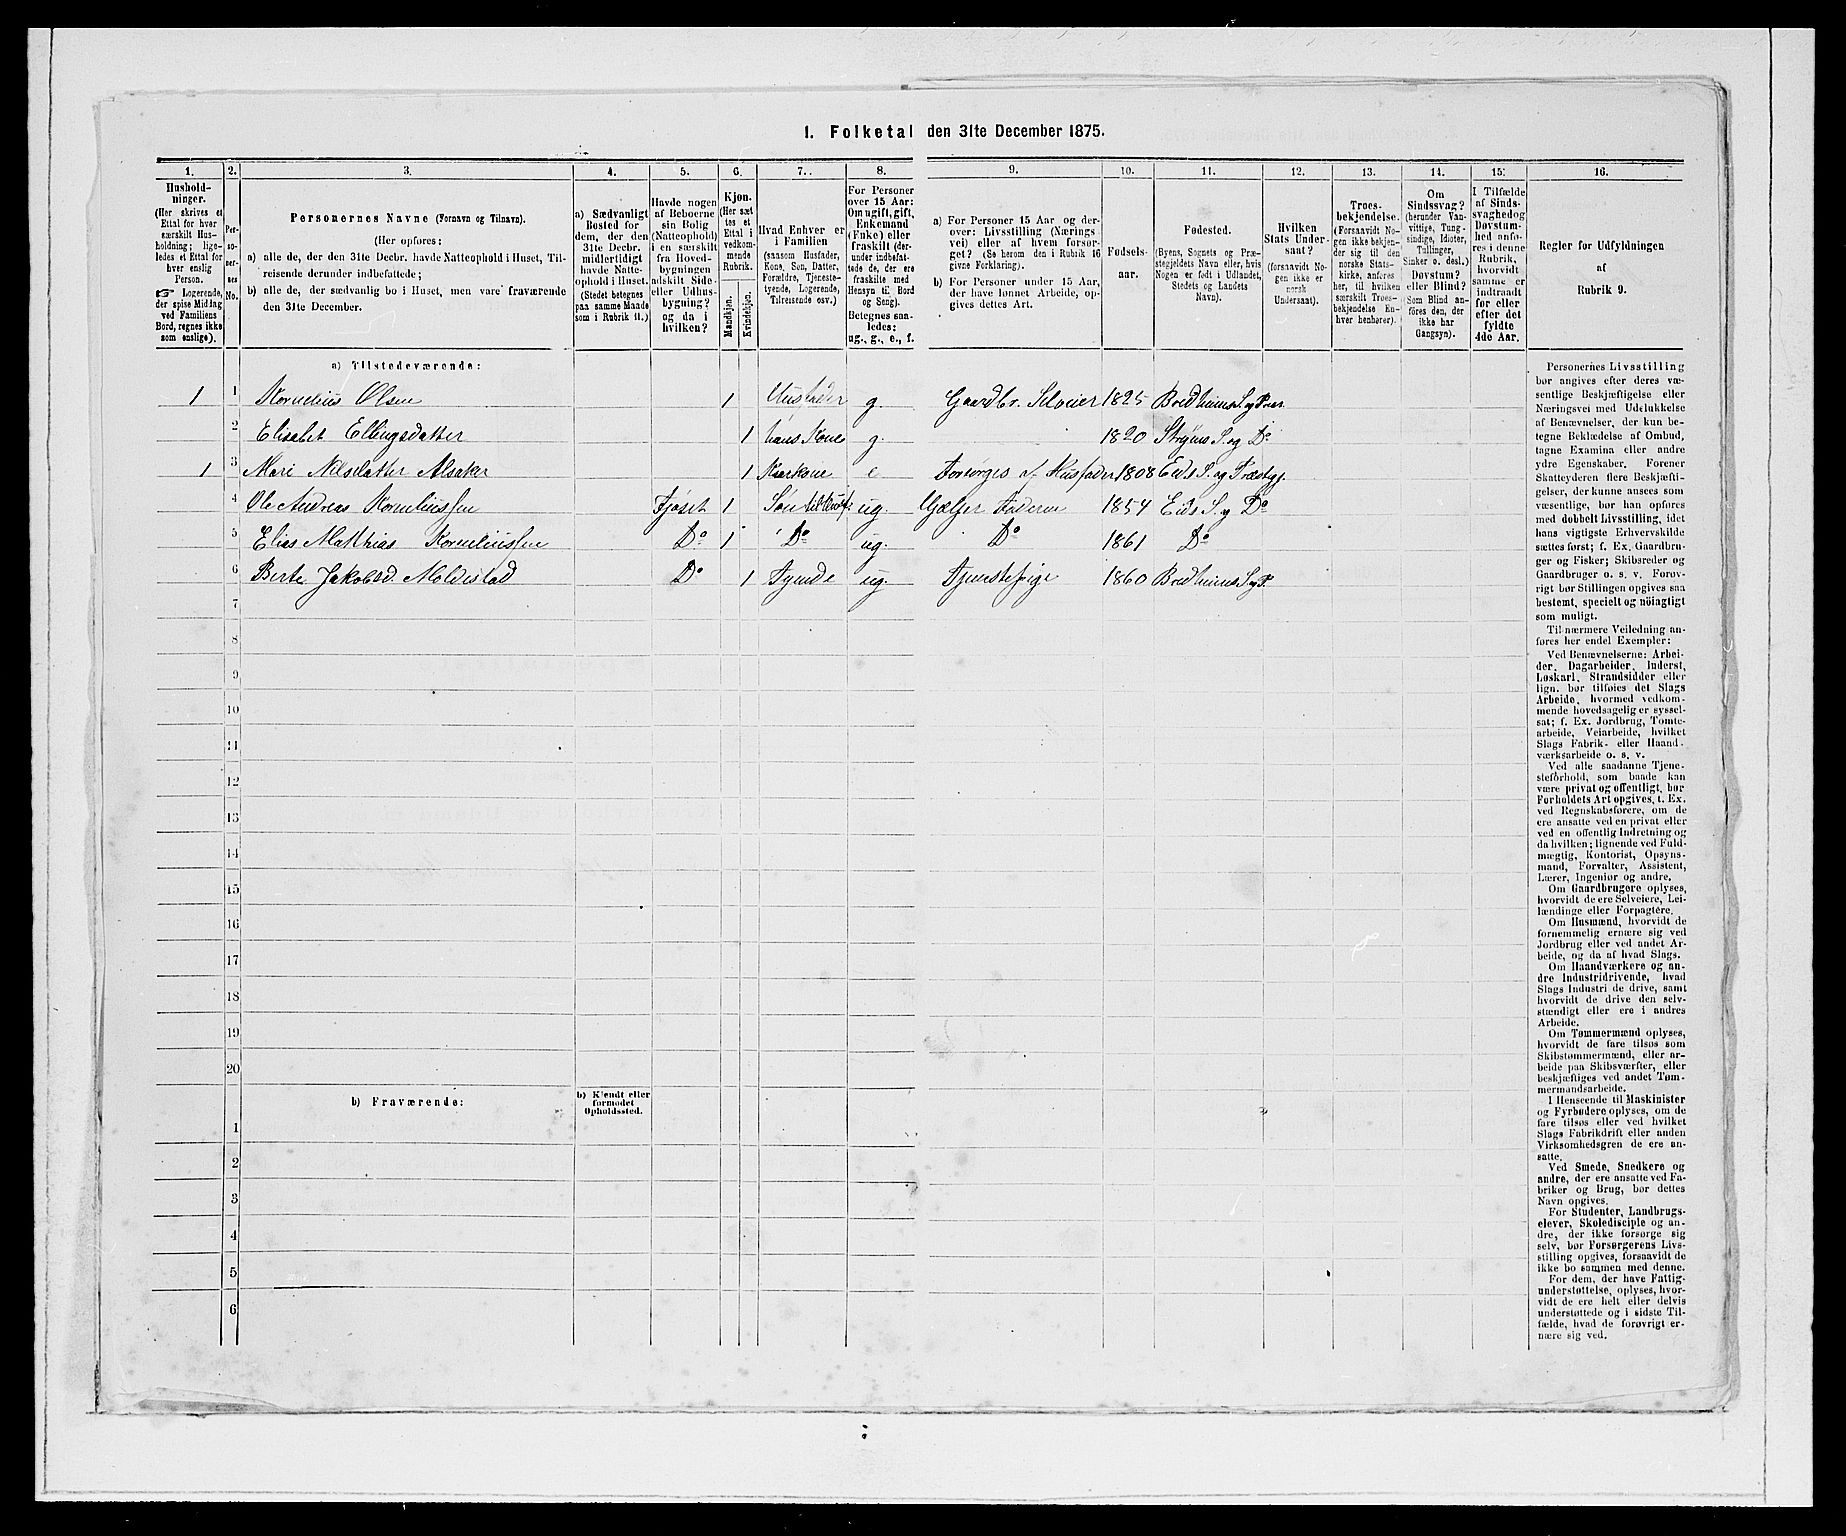 1. Folketal den 31te December 1875.
1. 2. 3. 4. 5. 6. 7. 8. 9. 10. 11. 12. 13. 14. 15. 16.
Hushold-
ninger.
(Her skrives et
Ettal for hver
særskilt Hus-
holdning; lige-
ledes et Ettal for
hver enslig
Person.
☞ Logerende,
der spise Middag
ved Familiens
Bord, regnes ikke
som enslige).
Per-
so-
ner-
nes
No.
Personernes Navne (Fornavn og Tilnavn).
(Her opføres:
a) alle de, der den 31te Decbr. havde Natteophold i Huset, Til-
reisende derunder indbefattede;
b) alle de, der sædvanlig bo i Huset, men vare fraværende
den 31te December.
a) Sædvanligt
Bosted for
dem, der den
31te Decbr.
midlertidigt
havde Natte-
ophold i Huset.
(Stedet betegnes
paa samme Maade
som i Rubrik 11.)
Havde nogen
af Beboerne
sin Bolig
(Natteophold)
i en særskilt
fra Hoved-
bygningen
adskilt Side-
eller Udhus-
bygning?
og da i
hvilken?
Kjøn.
(Her sæt-
tes et
Ettal i
vedkom-
mende
Rubrik.
Mandkjøn.
Kvindekjøn.
Hvad Enhver er
i Familien
(saasom Husfader,
Kone, Søn, Datter,
Forældre, Tjeneste-
tyende, Logerende,
Tilreisende osv.)
For Personer
over 15 Aar:
Om ugift, gift,
Enkemand
(Enke) eller
fraskilt (der-
under indbefat-
tede de, der ere
fraskilte med
Hensyn til Bord
og Seng).
Betegnes saa-
ledes:
ug., g., e., f.
a) For Personer 15 Aar og der-
over: Livsstilling (Nærings-
vei) eller af hvem forsør-
get? (Se herom den i Rubrik 16
givne Forklaring).
b) For Personer under 15 Aar,
der have lønnet Arbeide, op-
gives dettes Art.
Fødsels-
aar.
Fødested.
(Byens, Sognets og Præ-
stegjeldets Navn eller, hvis
Nogen er født i Udlandet,
Stedets og Landets
Navn).
Hvilken
Stats Under-
saat?
(forsaavidt No-
gen ikke er
norsk
Undersaat).
Troes-
bekjendelse.
(Forsaavidt No-
gen ikke bekjen-
der sig til den
norske Stats-
kirke, anføres
her, til hvilken
særskilt Troes-
bekjendelse En-
hver henhører).
Om
Sindssvag?
(herunder Van-
vittige, Tung-
sindige, Idioter,
Tullinger,
Sinker o. desl.)
Døvstum?
eller Blind?
(Som Blind an-
føres den, der
ikke har
Gangsyn).
I Tilfælde
af Sinds-
svaghed og
Døvstum-
hed anfø-
res i denne
Rubrik,
hvorvidt
samme er
indtraadt
før eller
efter det
fyldte
4de Aar.
Regler for Udfyldningen
af
Rubrik 9.
a) Tilstedeværende:
1 1 Kornelius Olsen 1 Husfader g. Gaardbr. Selveier 1825 Bredheims S. og Præs.
2 Elisabet Ellingsdatter 1 hans Kone g. 1820 Stryns S. og Do
1 3 Mari Nilsdatter Alsaker 1 Kaarkone e Forsørges af Husfader 1808 Eids S. og Præstegj.
4 Ole Andreas Korneliussen Fjøset 1 Søn til Husf. ug. Hjælper Faderen 1854 Eids S. og Do
5 Elias Matthias Korneliussen Do 1 Do ug. Do 1861 Do
6 Berte Jakobsd. Moldestad Do 1 Tyende ug. Tjenestepige 1860 Bredheims S. og P.
7
8
9
10
11
12
13
14
15
16
17
18
19
20
b) Fraværende:
b) Kjendt eller
formodet
Opholdssted.
1
2
3
4
5
6
Personernes Livsstilling
bør angives efter deres væ-
sentlige Beskjæftigelse eller
Næringsvei med Udelukkelse
af Benævnelser, der kun be-
tegne Beklædelse af Ombud,
tagne Examina eller andre
ydre Egenskaber. Forener
Skatteyderen flere Beskjæfti-
gelser, der kunne ansees som
væsentlige, bør han opføres
med dobbelt Livsstilling, idet
hans vigtigste Erhvervskilde
sættes først; f. Ex. Gaardbru-
ger og Fisker; Skibsreder og
Gaardbruger o. s. v. Forøv-
rigt bør Stillingen opgives saa
bestemt, specielt og nøiagtigt
som muligt.
Til nærmere Veiledning an-
føres her endel Exempler:
Ved Benævnelserne: Arbei-
der, Dagarbeider, Inderst,
Løskarl, Strandsidder eller
lign. bør tilføies det Slags
Arbeide, hvormed vedkom-
mende hovedsagelig er syssel-
sat; f. Ex. Jordbrug, Tomte-
arbeide, Veiarbeide, hvilket
Slags Fabrik- eller Haand-
værksarbeide o. s. v.
Ved alle saadanne Tjene-
steforhold, som baade kan
være privat og offentligt, bør
Forholdets Art opgives, t. Ex.
ved Regnskabsførere, om de
ere ansatte ved en privat eller
ved en offentlig Indretning og
da hvilken; lignende ved Fuld-
mægtig, Kontorist, Opsyns-
mand, Forvalter, Assistent,
Lærer, Ingeniør og andre.
Om Gaardbrugere oplyses,
hvorvidt de ere Selveiere, Lei-
lændinge eller Forpagtere.
Om Husmænd, hvorvidt de
fornemmelig ernære sig ved
Jordbrug eller ved andet Ar-
beide, og da af hvad Slags.
Om Haandværkere og an-
dre Industridrivende, hvad
Slags Industri de drive, samt
hvorvidt de drive den selv-
stændigt eller ere i andres
Arbeide.
Om Tømmermænd oplyses,
hvorvidt de fare tilsøs som
Skibstømmermænd, eller ar-
beide paa Skibsværfter, eller
beskjæftiges ved andet Tøm-
mermandsarbeide.
I Henseende til Maskinister
og Fyrbødere oplyses, om de
fare tilsøs eller ved hvilket
Slags Fabrikdrift eller anden
Virksomhedsgren de ere an-
satte.
Ved Smede, Snedkere og
andre, der ere ansatte ved Fa-
briker og Brug, bør dettes
Navn opgives.
For Studenter, Landbrugs-
elever, Skoledisciple og an-
dre, der ikke forsørge sig
selv, bør Forsørgerens Livs-
stilling opgives, forsaavidt de
ikke bo sammen med denne.
For dem, der have Fattig-
understøttelse, oplyses, hvor-
vidt de ere helt eller delvis
understøttede og i sidste Til-
fælde, hvad de forøvrigt er-
nære sig ved.